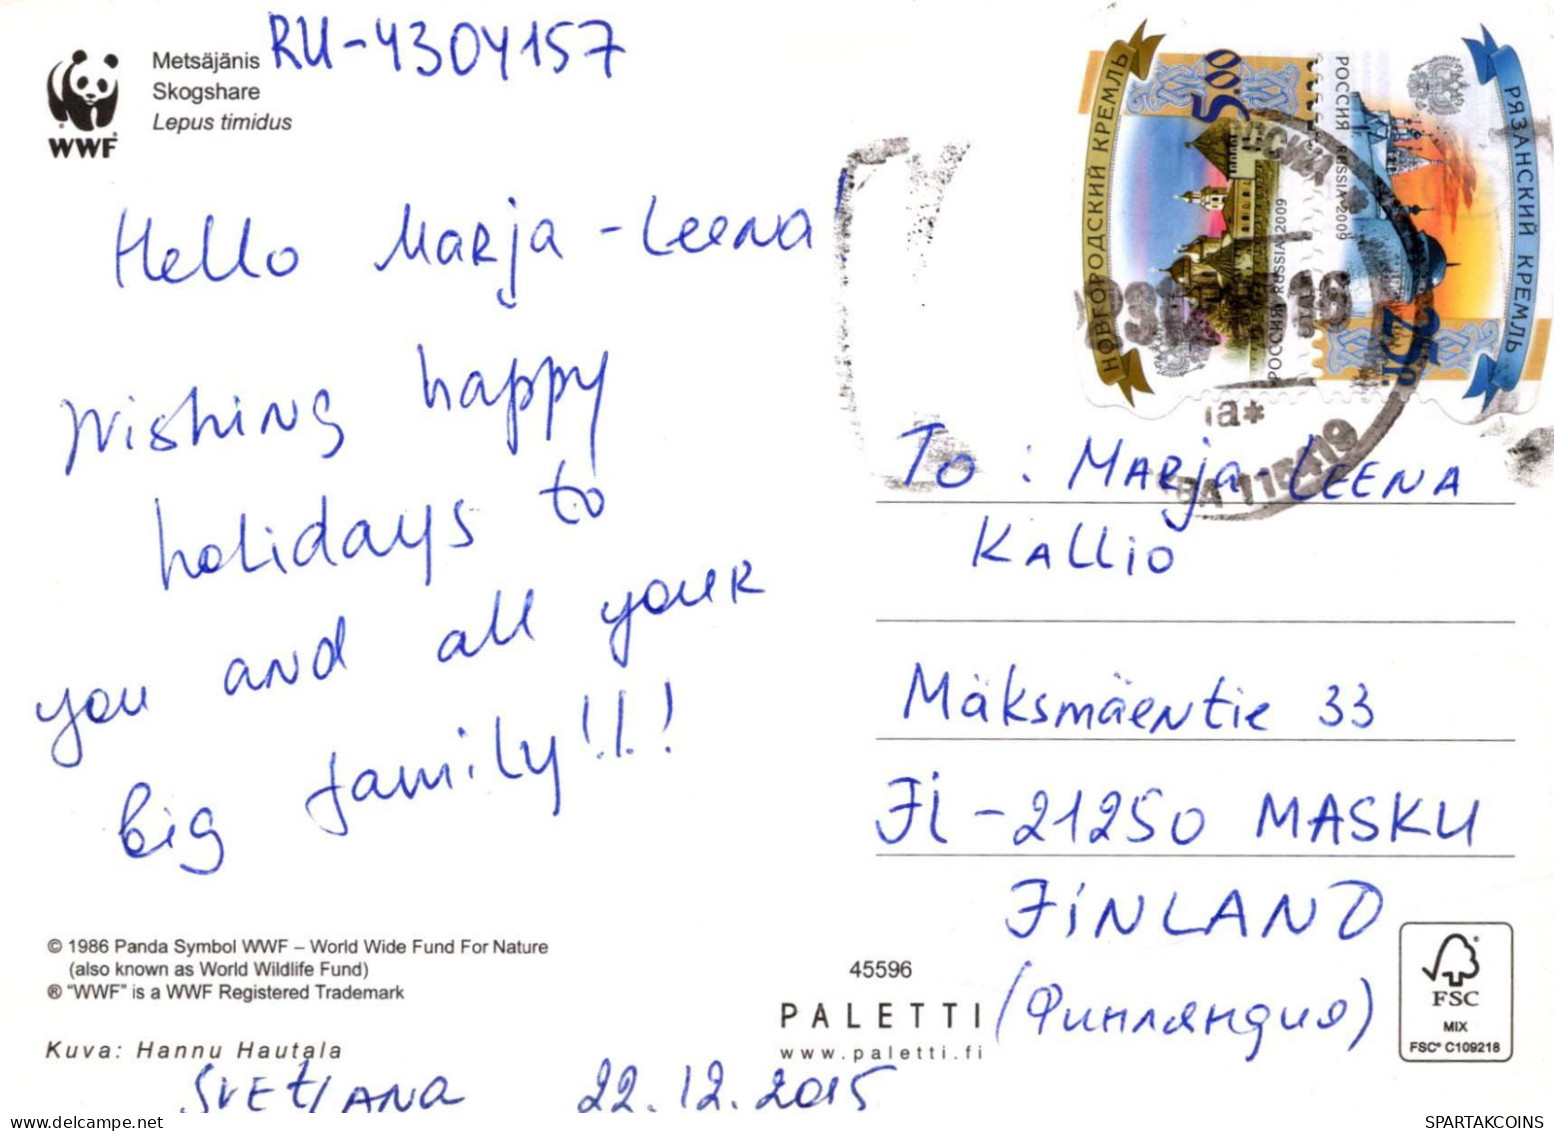 Metsäjänis
Skogshare
Lepus timidus
WWF
RU-4304157
НОВГОРОДСКИЙ КРЕМЛЬ
5.00
РОССИЯ RUSSIA 2009
РОССИЯ RUSSIA 2009
25р.
РЯЗАНСКИЙ КРЕМЛЬ
115419
Hello Marja-Leena!
Wishing happy
holidays to
you and all your
big family!!!
To: Marja LEENA
Kallio
Mäksmäentie 33
Fi-21250 MASKU
FiNLAND
(Финляндия)
© 1986 Panda Symbol WWF – World Wide Fund For Nature
(also known as World Wildlife Fund)
® "WWF" is a WWF Registered Trademark
Kuva: Hannu Hautala
Svetlana 22.12.2015
45596
PALETTI
www.paletti.fi
FSC
MIX
FSC® C109218
SPARTAKCOINS